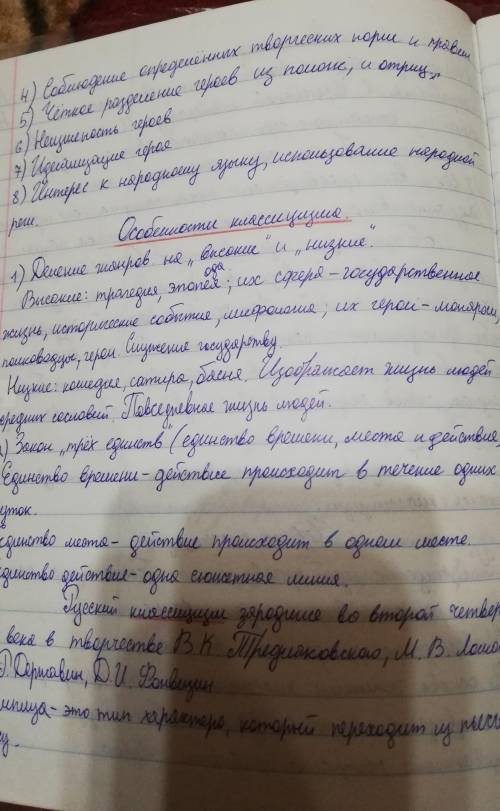 4) Соблюдение определённых творческих норм и правил
5) Чёткое разделение героев из полож, и отриц.
6) Неизменность героев
7) Идеализация героя
8) Интерес к народному языку, использование народной
речи.
Особенности классицизма.
1) Деление жанров на „высокие" и „низкие".
ода
Высокие: трагедия, эпопея; их сфера - государственная
жизнь, исторические события, мифология; их герои - монархи,
полководцы, герои. Служение государству.
Низкие: комедия, сатира, басня. Изображает жизнь людей
средних сословий. Повседневная жизнь людей.
) Закон „трёх единств" (единство времени, места и действия,
Единство времени - действие происходит в течение одних
уток.
единство места - действие происходит в одном месте.
единство действия - одна сюжетная линия.
Русский классицизм зародился во второй четвер
века в творчестве В.К. Тредиаковского, М. В. Ломо
Р. Державин, Д.И. Фонвизин
мплуа - это тип характера, который переходит из пьесы